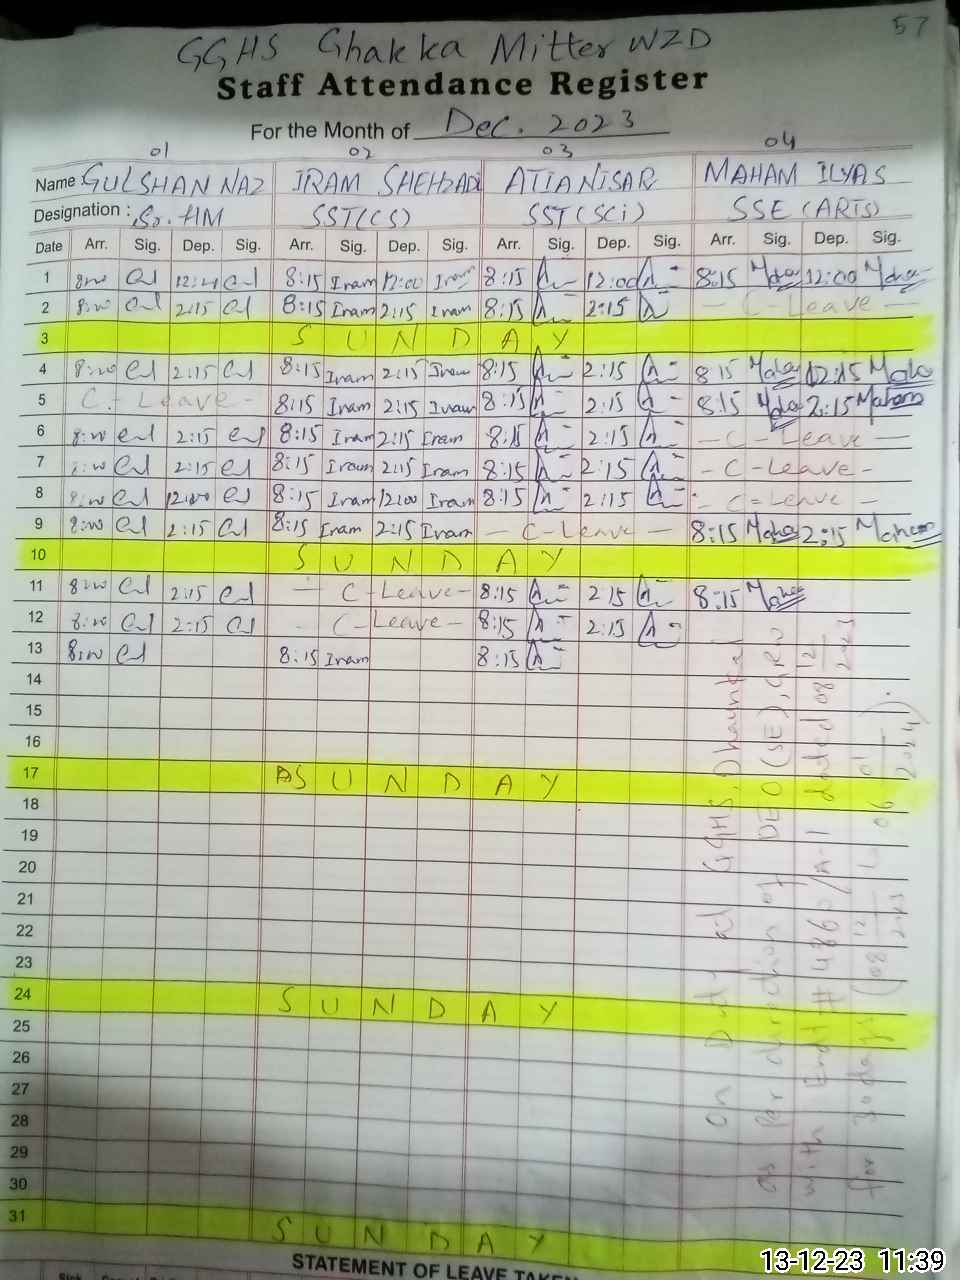 57
GGHS Ghakka Mitter WZD
Staff Attendance Register
For the Month of Dec. 2023
01 02 03 04
Name GULSHAN NAZ IRAM SHEHZADI ATIA NISAR MAHAM ILYAS
Designation : Sr. HM SST(CS) SST(SCi) SSE (ARTS)
Date Arr. Sig. Dep. Sig. Arr. Sig. Dep. Sig. Arr. Sig. Dep. Sig. Arr. Sig. Dep. Sig.
1 8:00 12:00 8:15 Iram 12:00 Iram 8:15 12:00 8:15 Maham 12:00 Maham
2 8:00 2:15 8:15 Iram 2:15 Iram 8:15 2:15 - C - Leave -
3 S U N D A Y
4 8:00 2:15 8:15 Iram 2:15 Iram 8:15 2:15 8:15 Maham 2:15 Maham
5 C - Leave - 8:15 Iram 2:15 Iram 8:15 2:15 8:15 Maham 2:15 Maham
6 8:00 2:15 8:15 Iram 2:15 Iram 8:15 2:15 - C - Leave -
7 8:00 2:15 8:15 Iram 2:15 Iram 8:15 2:15 - C - Leave -
8 8:00 12:00 8:15 Iram 12:00 Iram 8:15 2:15 - C - Leave -
9 8:00 2:15 8:15 Iram 2:15 Iram - C - Leave - 8:15 Maham 2:15 Maham
10 S U N D A Y
11 8:00 2:15 - C - Leave - 8:15 2:15 8:15 Maham
12 8:00 2:15 - C - Leave - 8:15 2:15
13 8:00 8:15 Iram 8:15
14
15
16
17 S U N D A Y
18
19
20
21
22
23
24 S U N D A Y
25
26
27
28
29
30
31 S U N D A Y
On Duty at GGHS, Dhaunkal
as per direction of DEO (SE), GRW
with Endt # 4860/A-1 dated 08 12 2023
for 30 days (08 12 2023 to 06 01 2024).
STATEMENT OF LEAVE TAKEN
13-12-23 11:39